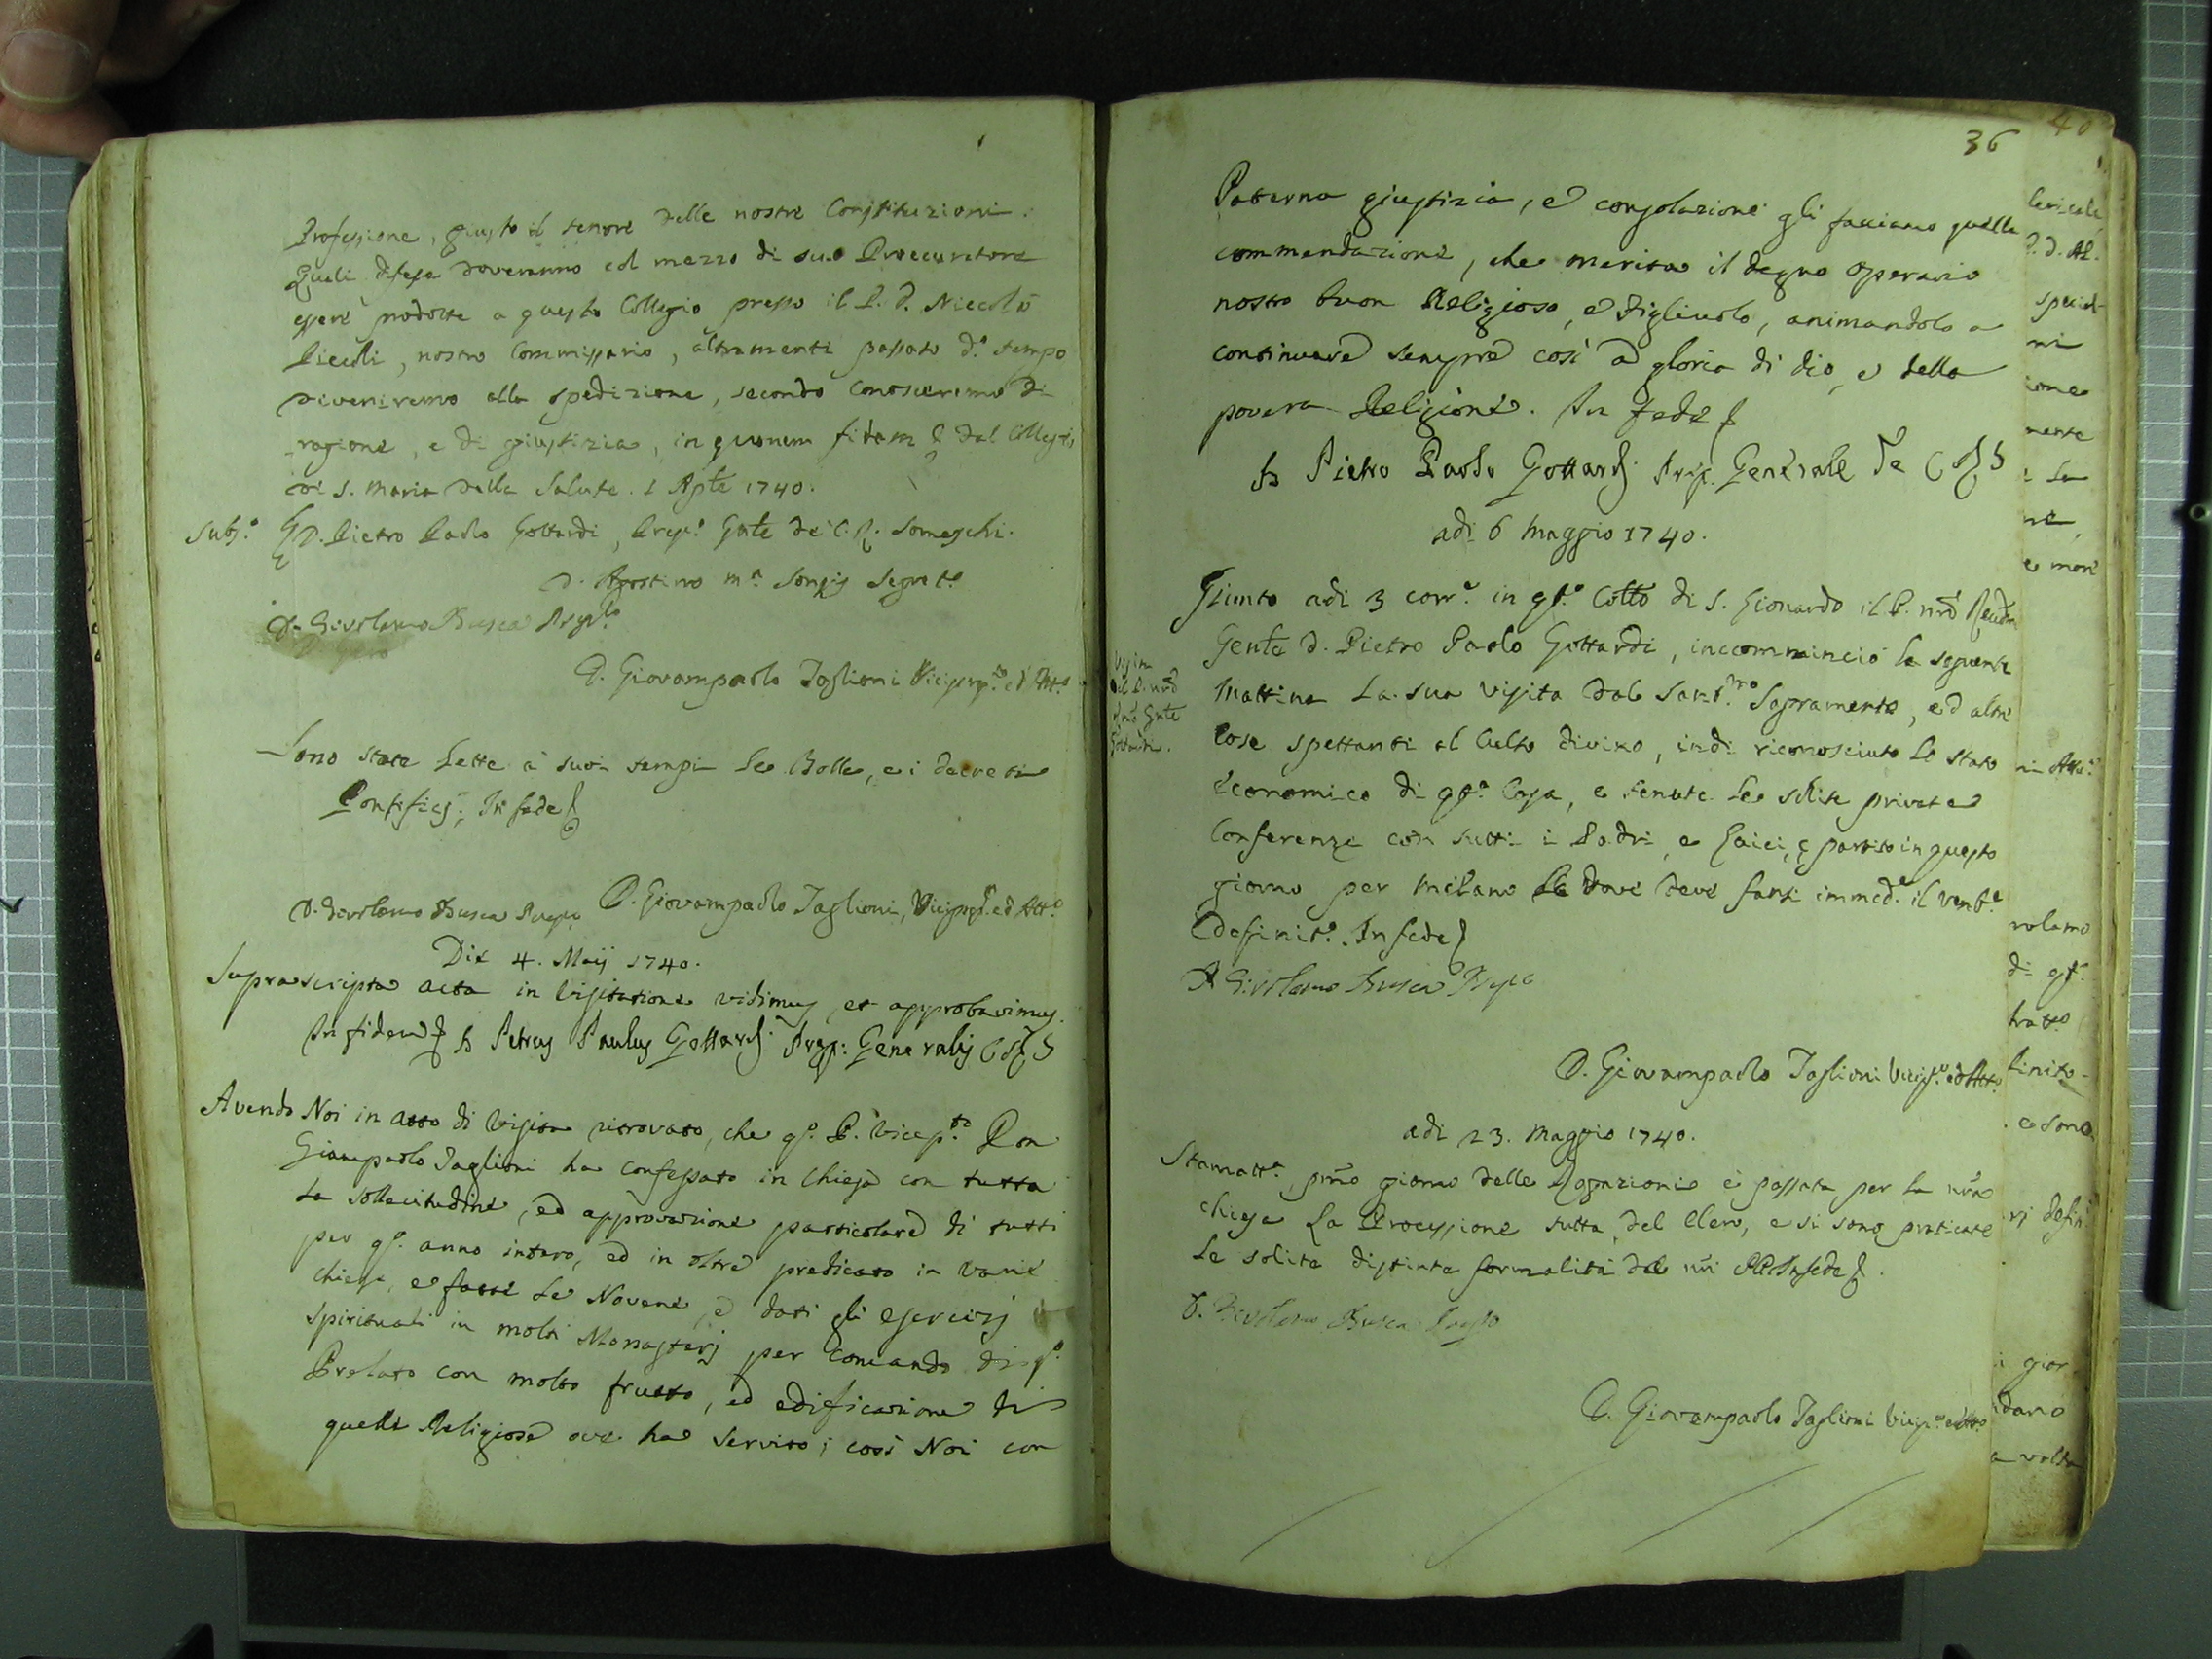 Professione, giusto il tenore delle nostre Constituzioni.
Quali difese doveranno col mezzo di suo Procuratore
essere prodotte a questo Collegio presso il P. D. Niccolò
Piccoli, nostro Commissario, altramenti passato d.o tempo
diveniremo alla spedizione, secondo conosceremo di
ragione, e di giustizia, in quorum fidem dal Collegio
di S. Maria della Salute. 1 Aple 1740.
Subs.o D. Pietro Paolo Gottardi, Prep.o Gnle de' C. R. Somaschi.
D. Agostino M.a Segret.o
D. Girolamo Busca Prep.to
D. Giovampaolo Taglioni Viceprep.to ed Att.o
Sono state lette a suoi tempi le Bolle, e i decreti
Pontificj; In fede
D. Girolamo Busca Prep.to D. Giovampaolo Taglioni, Viceprep.to ed Att.o
Die 4. Maij 1740.
Suprascripta acta in Visitatione vidimus, et approbavimus.
In fidem D. Petrus Paulus Gottardi Prep: Generalis C R S
Avendo Noi in atto di Visita ritrovato, che q.o P. Vicep.to Don
Giampaolo Taglioni ha confessato in Chiesa con tutta
la sollecitudine, ed approvazione particolare di tutti
per q.o anno intero, ed in oltre predicato in varie
chiese, e fatte le Novene, e dati gli esercizj
spirituali in molti Monasterj per comando di q.o
Prelato con molto frutto, ed edificazione di
quelle Religiose ove ha servito; così Noi con
36
Paterna giustizia, e consolazione gli facciamo quella
commendazione, che merita il degno operario
nostro buon Religioso, e Figliuolo, animandolo a
continuare sempre così a gloria di dio, e della
povera Religione. In fede
D. Pietro Paolo Gottardi Prep. Generale de C R S
adi 6 Maggio 1740.
Visita
del P. nro
Rmo Gnle
Gottardi.
Giunto adi 3 corr.e in qs.o Collo di S. Gionardo il P. nro Revdm
Genle D. Pietro Paolo Gottardi, incommincio la seguente
mattina la sua visita dal Sant.mo Sagramento, ed altre
cose spettanti al Culto divino, indi riconosciuto lo stato
economico di qs.a Casa, e tenute le solite private
Conferenze con tutti i Padri, e Laici, è partito in questo
giorno per Milano la dove deve farsi immed.e il Venb.e
Definit.o. In fede
D. Girolamo Busca Prep.to
D. Giovampaolo Taglioni Vicep.to ed Att.o
adi 23. Maggio 1740.
Stamatt.a pmo giorno delle Rogazioni è passata per la nra
chiesa la Processione tutta del Clero, e si sono praticate
le solite distinte formalità da nri PP. In fede
D. Girolamo Busca Prep.to
D. Giovampaolo Taglioni Vicep.to ed Att.o
40